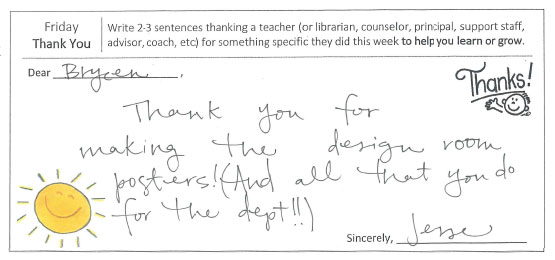 Friday
Thank You
Write 2-3 sentences thanking a teacher (or librarian, counselor, principal, support staff,
advisor, coach, etc) for something specific they did this week to help you learn or grow.
Dear Brycen,
Thanks!
Thank you for
making the design room
posters! (And all that you do
for the dept!!)
Sincerely, Jesse